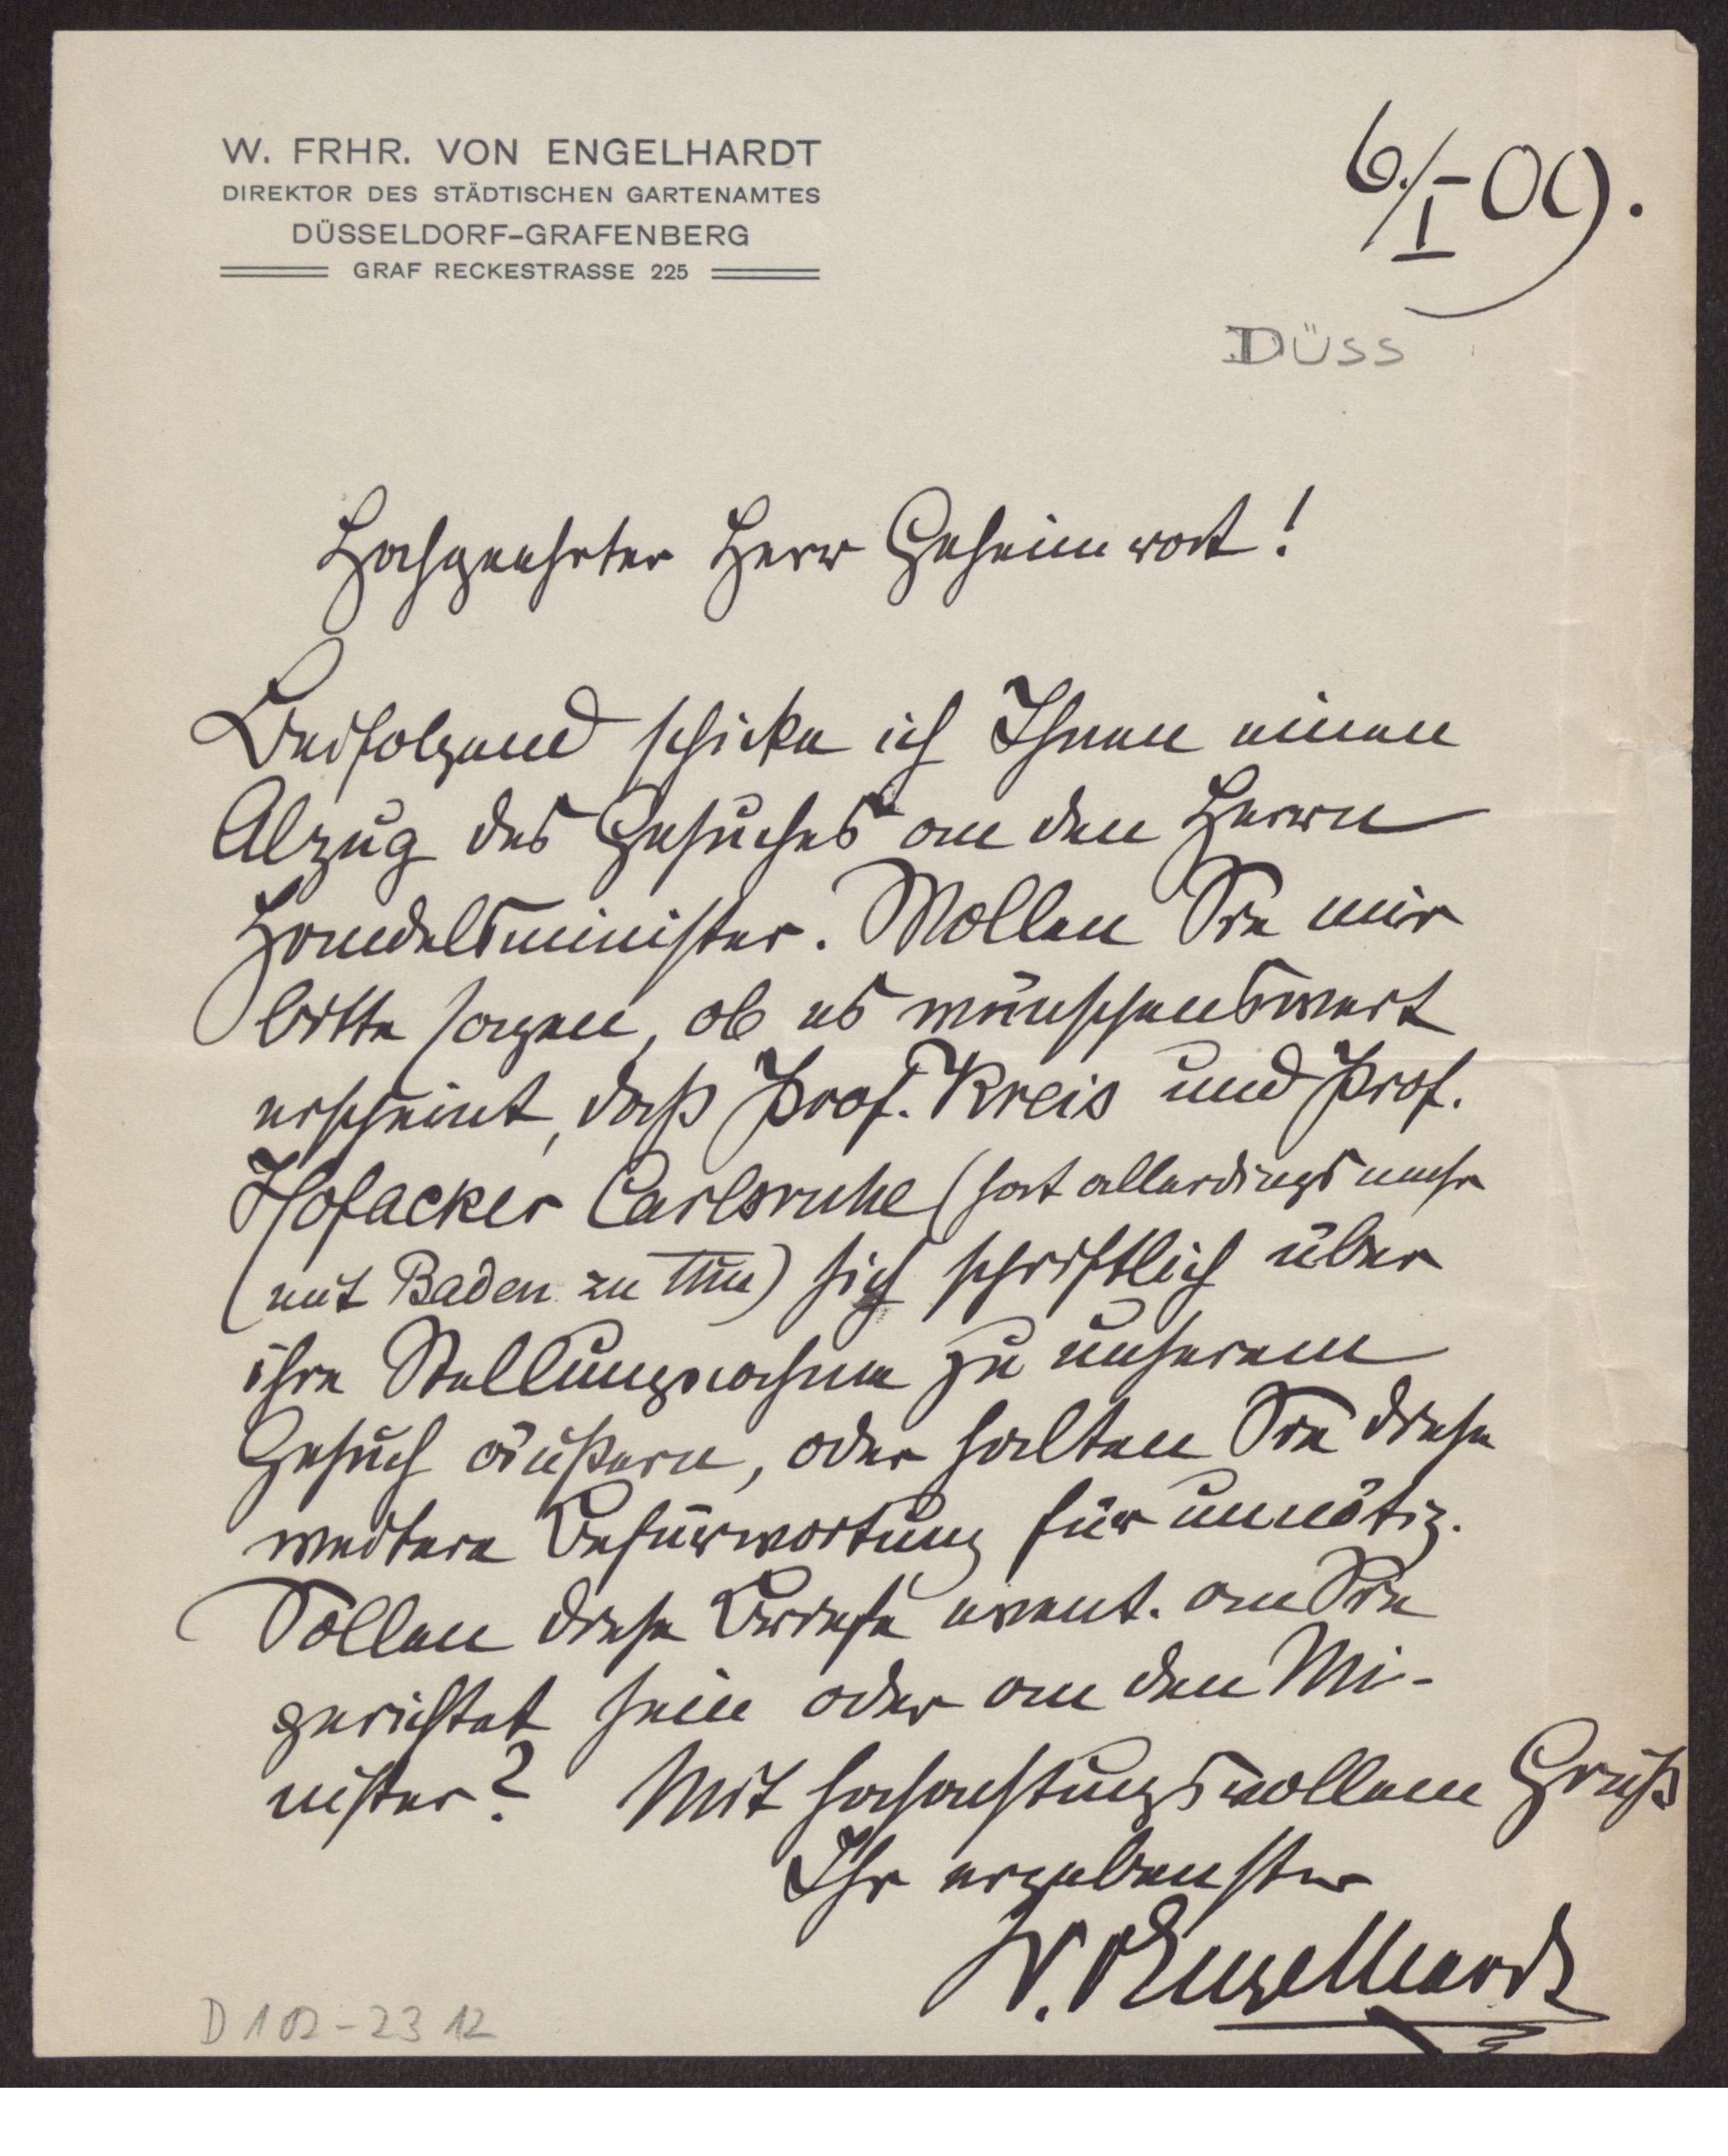 W. FRHR. VON ENGELHARDT
DIREKTOR DES STÄDTISCHEN GARTENAMTES
DÜSSELDORF-GRAFENBERG
GRAF RECKESTRASSE 225
6./I-09.
DÜSS
Hochgeehrter Herr Geheimrat!
Beifolgend schicke ich Ihnen einen
Abzug des Gesuches an den Herrn
Handelsminister. Wollen Sie mir
bitte sagen, ob es wünschenswert
erscheint, daß Prof. Kreis und Prof.
Hofacker Carlsruhe (hat allerdings mehr
(mit Baden zu tun) sich schriftlich über
ihre Stellungnahme zu unserem
Gesuch äußern, oder halten Sie diese
weitere Befürwortung für unnötig.
Sollen diese Briefe event. an Sie
gerichtet sein oder an den Mi-
nister? Mit hochachtungsvollem Gruß
Ihr ergebenster
W. v Engelhardt
D 102-23 12